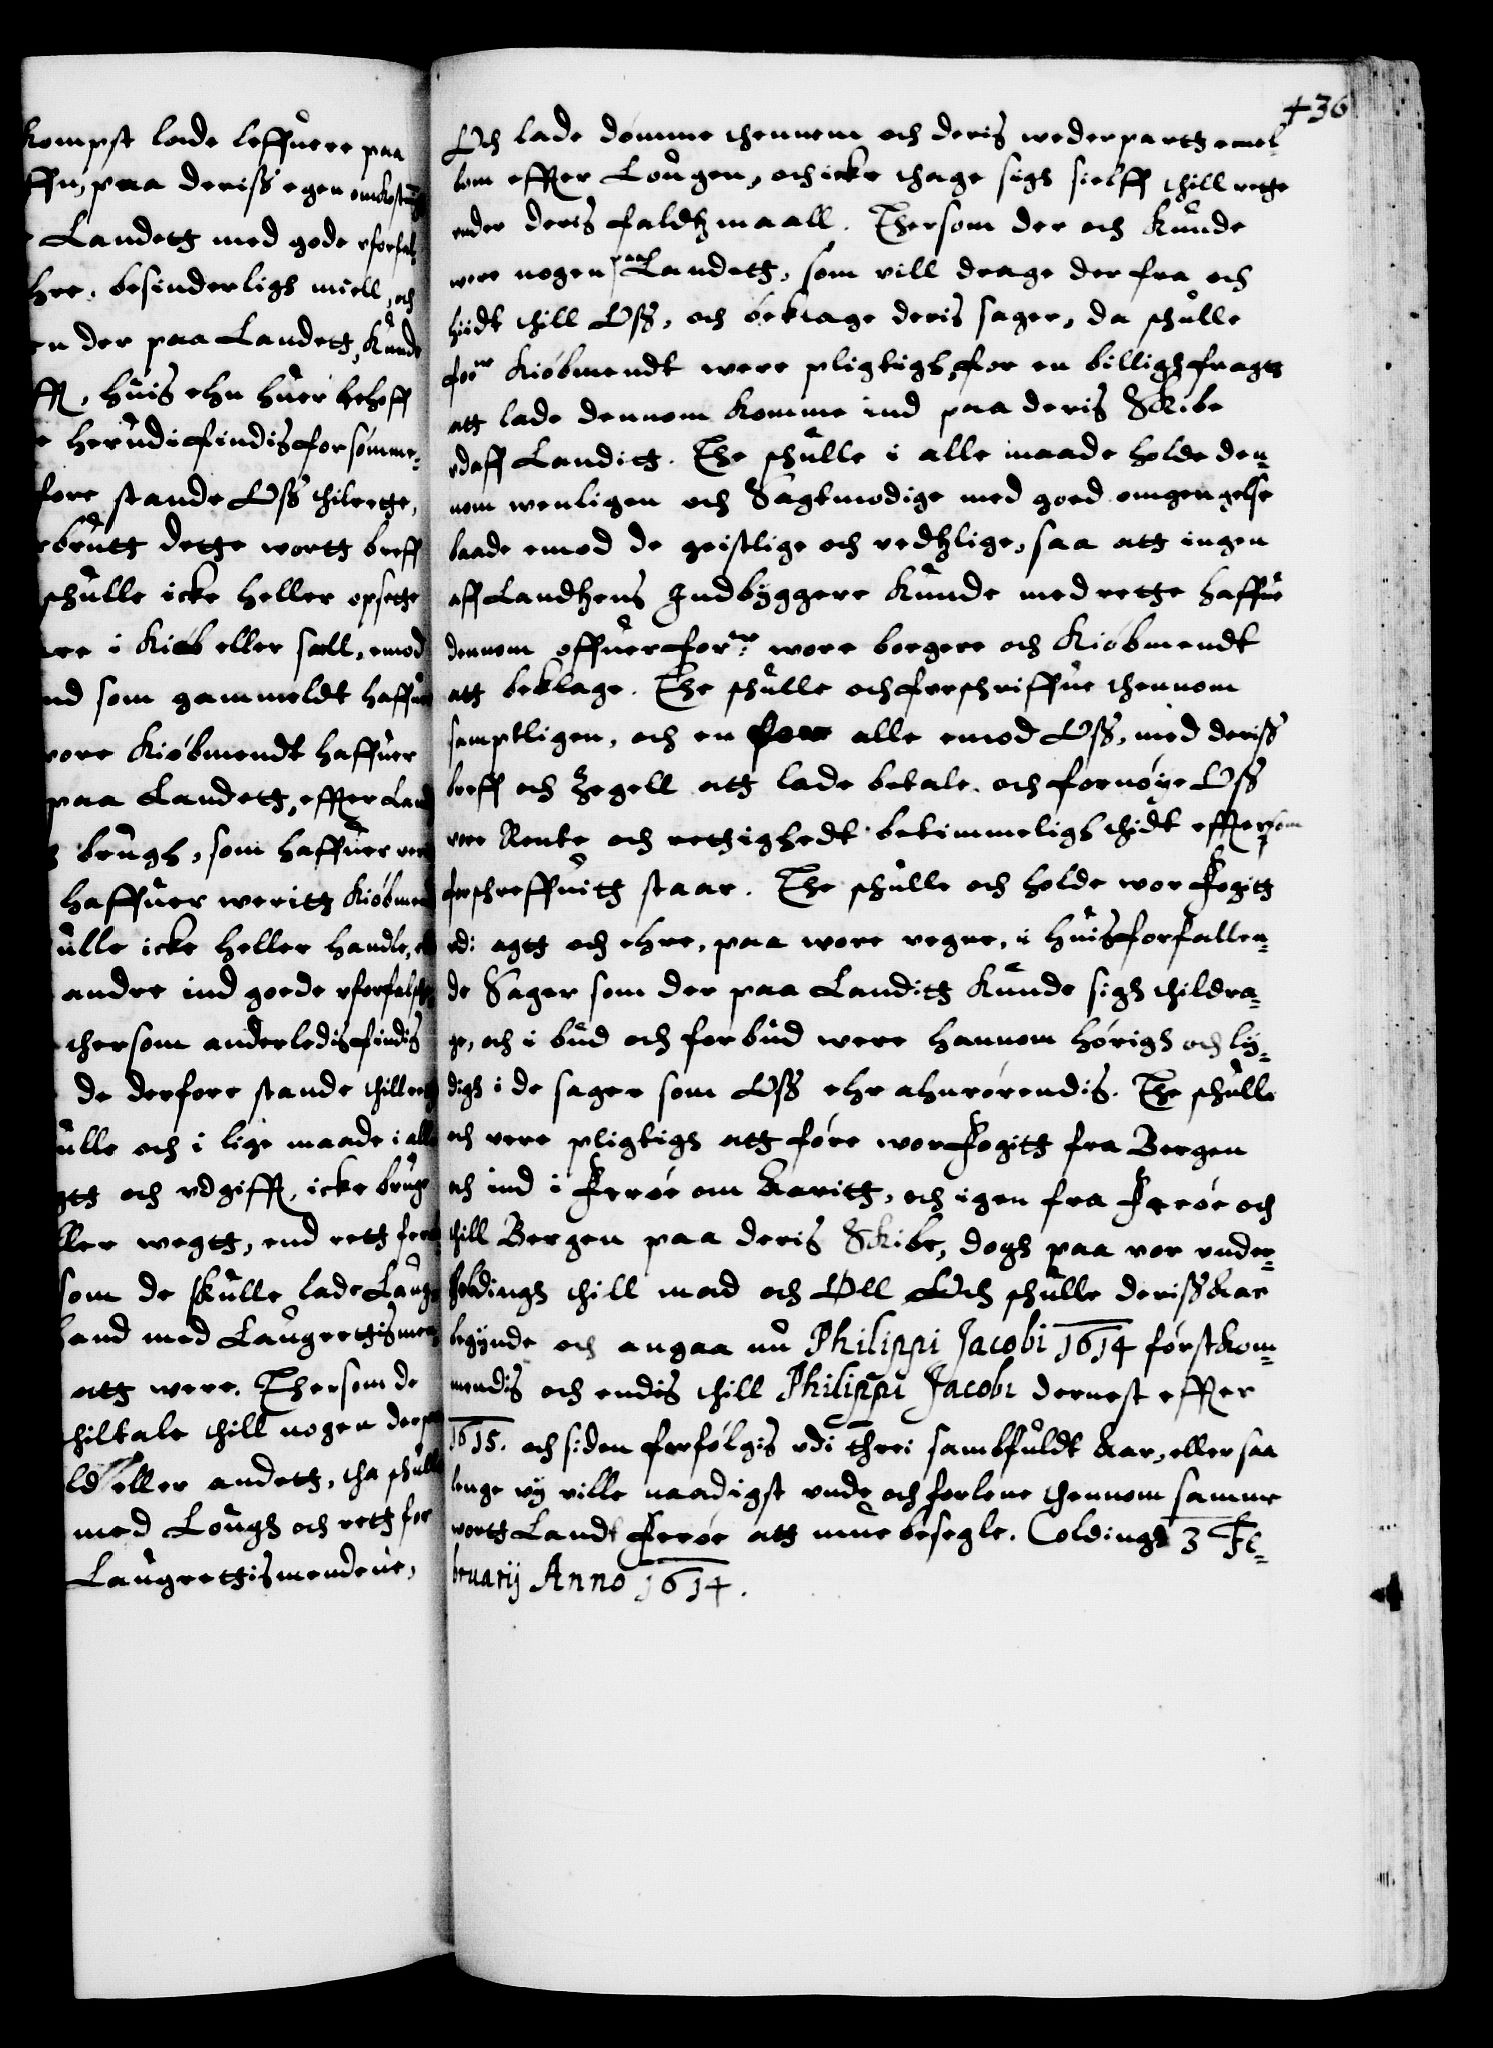 kompst lade leffuere paa
ffn, paa deriss egen omkostning
Landett med gode vforfal-
hre, besinderligh miell, och
en der paa Landett, kunde
ff, huis ehn huer behoff
herudi findis forsömme-
fore stande Oss thilrette,
brutt dette wortt breff
schulle icke heller opsette
re i Kiöb eller sell, emod
nd som gammeldt haffuer
vore Kiöbmendt haffuer
paa Landett, effter Land
brugh, som haffuer
haffuer weritt Kiöbmend
ulle icke heller handle,
andre ind gode vforfalsk
thersom anderledis findis
de derfore stande thill rett
ulle och i lige maade i alle
gtt och vdgifft, icke bruge
ller wegtt, end rett
som de skulle lade Laug
hand med Laugrettismen
att were. Thersom de
thiltale thill nogen der
ld eller andett, tha schulle
med Lough och rett for
Laugrettismendene,
436
Och lade dömme thennem och deris wederpartt emel-
lom effter Lougen, och icke thage sigh sielff thill rette
vnder deris faldtzmaall. Thersom der och kunde
were nogen paa Landett, som vill drage der fra och
hiidt thill Oss, och beklage deris sager, da schulle
forne Kiöbmendt were pligtigh, for en billigh fragtt
att lade dennom komme ind paa deris Skibe
vdaff Landitt. The schulle i alle maade holde den-
nom wenligen och Sagtmodige med goed omgengelse
baade emod de geistlige och verdtzlige, saa att ingen
aff Landtzens Indbyggere kunde med rette haffue
dennom offuer forne wore borgere och Kiöbmendt
att beklage. The schulle och forschriffue thennom
samptligen, och en for alle emod Oss, med deriss
breff och Zegell att lade betale och fornöye Oss
vor Rente och retthighedt betimmeligh thidt effter som
forschreffuitt staar. The schulle och holde wor Fogitt
vdi agtt och ehre, paa wore vegne, i huis forfallen-
de Sager som der paa Landitt kunde sigh thildra-
ge, och i bud och forbud were hannom hörigh och ly-
digh i de sager som Oss ehr ahnrörendis. The schulle
och vere pligtigh att före wor Fogitt fra Bergen
och ind i Feröe om Aaritt, och igen fra Feröe och
thill Bergen paa deris Skibe, dogh paa vor vnder-
holdingh thill mad och Öll Och schulle deriss Aar
begynde och angaa nu Philippi Jacobi 1614 förstkom-
mendis och endis thill Philippi Jacobi dernest effter
1615. och siden forfölgis vdi threi sambfuldt Aar, eller saa
lenge vy ville naadigst vnde och forlene thennom samme
wortt Landt Feröe att nue besegle. Coldingh 3 Fe-
bruarij Anno 1614.